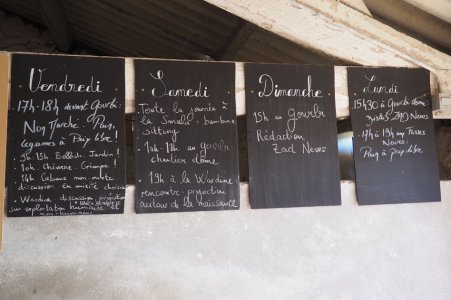 Vendredi
17h-18h devant Gourbi:
Non Marché: Pain,
légumes à Prix libre!
9h 15h Bellish. Jardin!
10h Chimère Grimpe!
14h Cabane non-mixte
discussion en mixité choisie
Wardine discussion projection
sur exploitation humaine et
non-humaine
Samedi
Toute la journée à
la Smala: bambine
sitting
10h-18h au Gourbi
chantier dôme
19h à la Wardine
rencontre-projection
autour de la naissance
Dimanche
15h au Gourbi
Rédaction
Zad News
Lundi
15h30 à Gourbi dôme
ZAD News
17h à 19h aux Fosses
Noires
Pain à prix libre